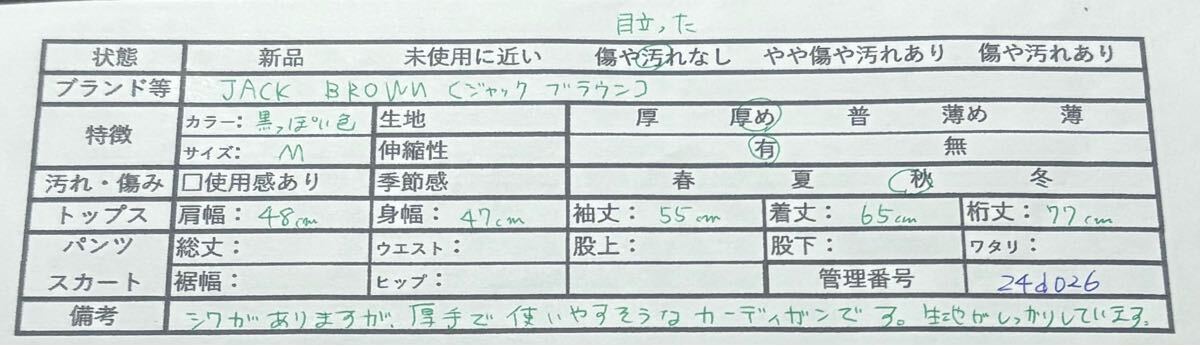 目立った
状態 新品 未使用に近い 傷や汚れなし やや傷や汚れあり 傷や汚れあり
ブランド等 JACK BROWN (ジャック ブラウン)
特徴 カラー: 黒っぽい色 生地 厚 厚め 普 薄め 薄
サイズ: M 伸縮性 有 無
汚れ・傷み □使用感あり 季節感 春 夏 秋 冬
トップス 肩幅: 48cm 身幅: 47cm 袖丈: 55cm 着丈: 65cm 裄丈: 77cm
パンツ 総丈: ウエスト: 股上: 股下: ワタリ:
スカート 裾幅: ヒップ: 管理番号 24d026
備考 シワがありますが、厚手で使いやすそうなカーディガンです。生地がしっかりしています。